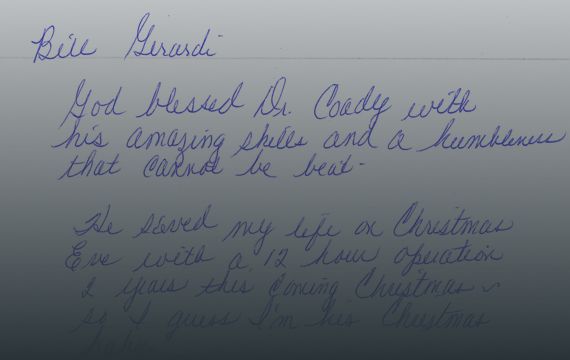 Bill Gerardi
God blessed Dr. Coady with
his amazing skills and a humbleness
that cannot be beat-
He saved my life on Christmas
Eve with a 12 hour operation
2 years this coming Christmas
so I guess I'm his Christmas